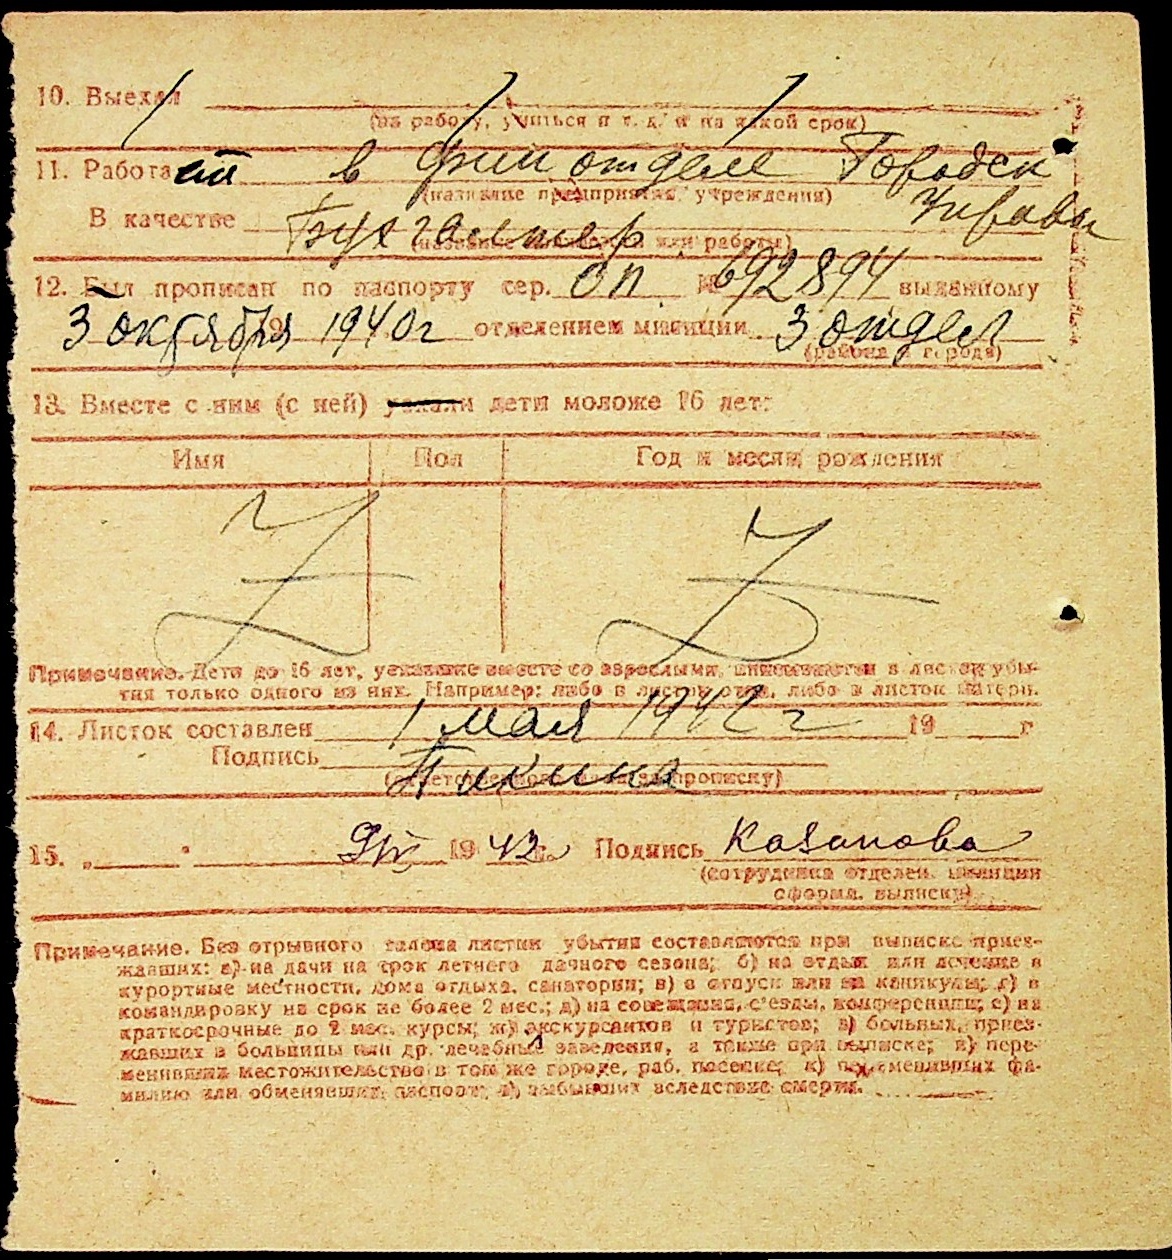 10. Выехал
(на работу, учиться и т. д. и на какой срок)
11. Работает в финотделе Городск
(название предприятия, учреждения)
Управы
В качестве Бухгалтер
12. Был прописан по паспорту сер. ОП № 692894 выданному
3 октября 19 1940 г отделением милиции 3 отдел
(района и города)
13. Вместе с ним (с ней) уехали дети моложе 16 лет:
Имя Пол Год и месяц рождения
Z Z
Примечание. Дети до 16 лет, уехавшие вместе со взрослыми, вписываются в листок убы-
тия только одного из них. Например: либо в листок отца, либо в листок матери.
14. Листок составлен 1 мая 1942 г 19 г
Подпись
(ответственного лица за прописку)
15. „ " 19 42 г. Подпись Казанова
(сотрудника отделен. милиции
оформл. выписку)
Примечание. Без отрывного талона листки убытия составляются при выписке приез-
жавших: а) на дачи на срок летнего дачного сезона; б) на отдых или лечение в
курортные местности, дома отдыха, санатории; в) в отпуск или на каникулы; г) в
командировку на срок не более 2 мес.; д) на совещания, с'езды, конференции; е) на
краткосрочные до 2 мес. курсы; ж) экскурсантов и туристов; з) больных, приез-
жавших в больницы или др. лечебные заведения, а также при выписке; и) пере-
менивших местожительство в том же городе, раб. поселке; к) переменивших фа-
милию или обменявших паспорт; л) выбывших вследствие смерти.